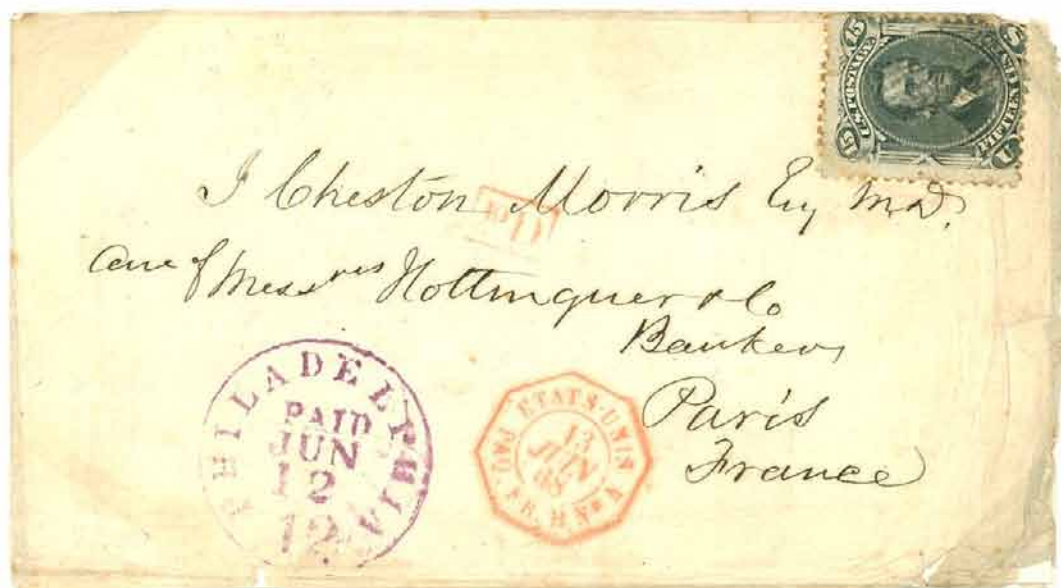 15 U.S. POSTAGE 15
J Cheston Morris Esq MD.
PD
Care of Messres Hottinguer & Co
Bankers
Paris
France
PHILADELPHIA
PAID
JUN
12
12
ETATS-UNIS
13
JUIN
68
PAQ. FR. H No